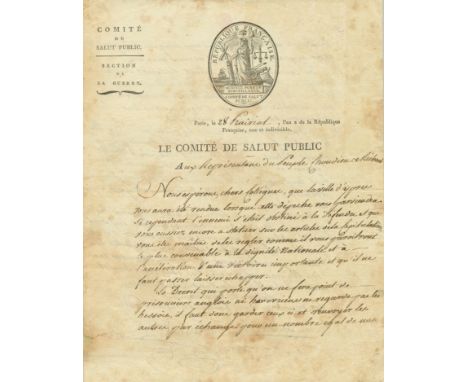 COMITÉ
DE
SALUT PUBLIC.
SECTION
DE
LA GUERRE.
RÉPUBLIQUE FRANÇAISE
COMITÉ DE SALUT
PUBLIC
Paris, le 28 Prairial, l'an 2 de la République
Française, une et indivisible.
LE COMITÉ DE SALUT PUBLIC
Aux Représentans du Peuple
Nous espérons, chers collègues, que la ville d'ypres
sera rendue lorsque cette dépêche vous parviendra
si cependant l'ennemi s'était obstiné à la défendre et que
vous eussiez encore à statuer sur les articles de la capitulation
vous êtes maîtres de les regler comme il vous paraîtra
le plus convenable à la dignité nationale et à
l'accélération d'une victoire importante et qu'il ne
faut pas laisser échapper.
Le Décret qui porte qu'on ne fera point de
prisonniers anglais ni hanovriens ne regarde pas les
hessois, il faut donc garder ceux ci et renvoyer les
autres par échange pour un nombre égal de nos